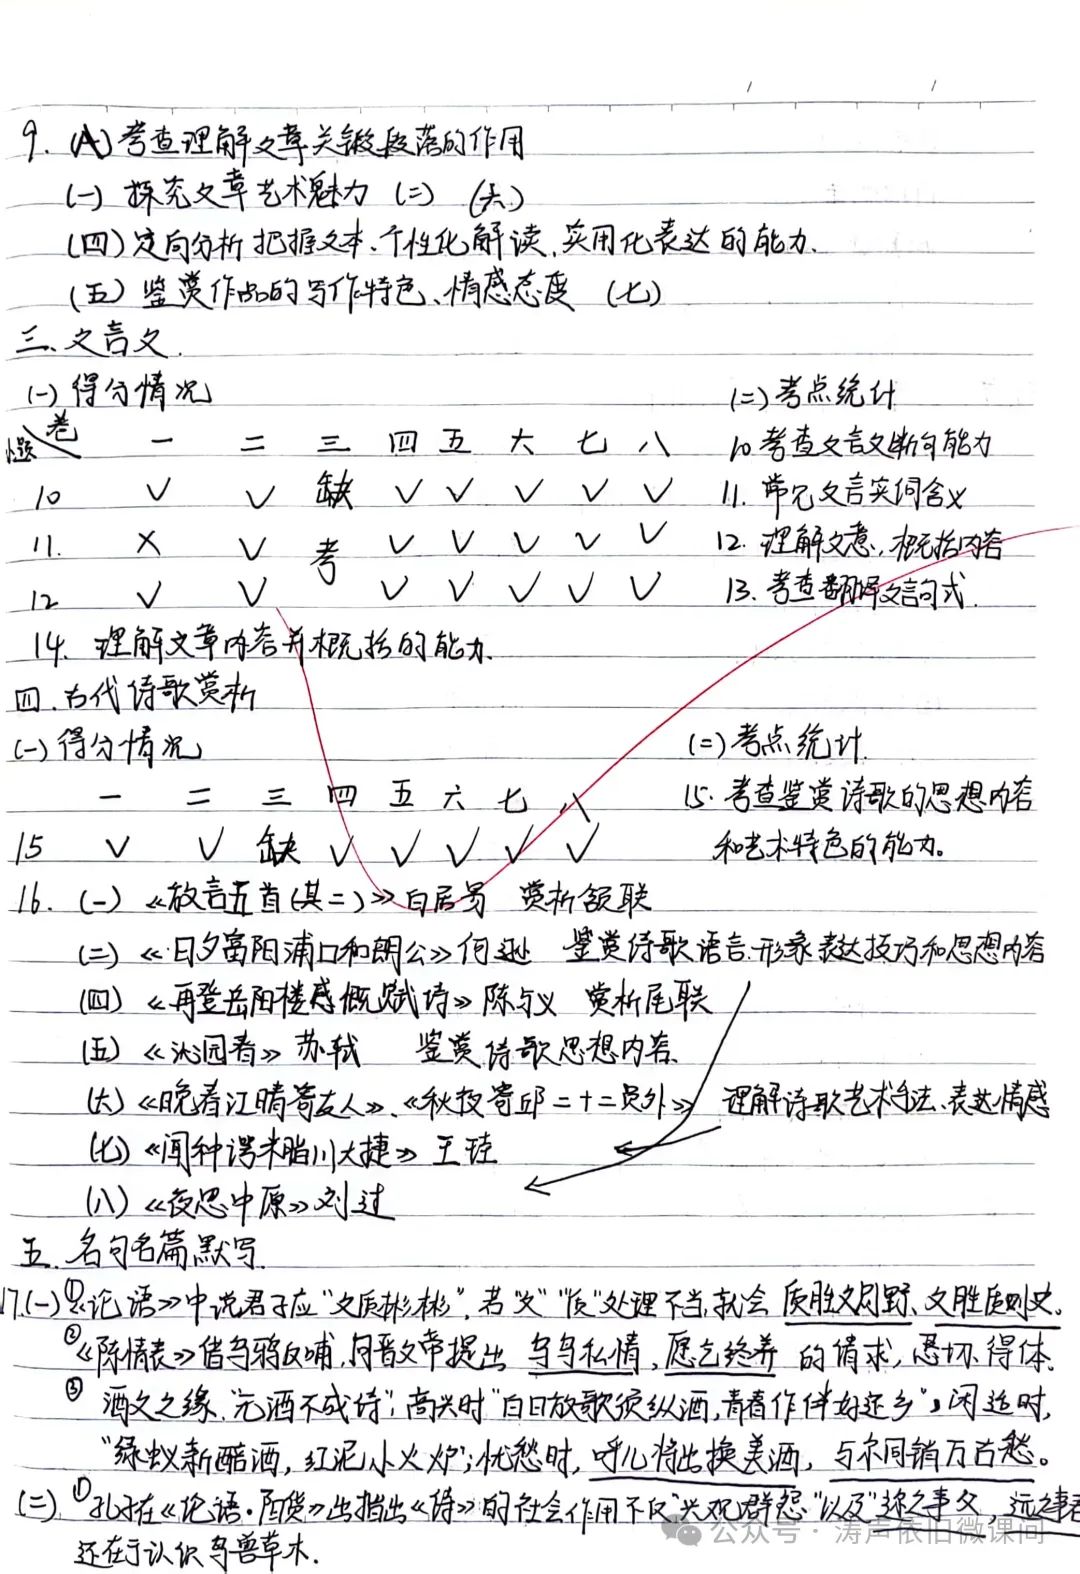 9. (八)考查理解文章关键段落的作用
(一) 探究文章艺术魅力 (二) (六)
(四)定向分析 把握文本、个性化解读、实用化表达的能力.
(五)鉴赏作品的写作特色、情感态度 (七)
三、文言文.
(一)得分情况 (二)考点统计
小题 卷 一 二 三 四 五 六 七 八 10考查文言文断句能力
10 ✓ ✓ 缺 ✓ ✓ ✓ ✓ ✓ 11. 常见文言实词含义
11. × ✓ 考 ✓ ✓ ✓ ✓ ✓ 12. 理解文意, 概括内容
12 ✓ ✓ ✓ ✓ ✓ ✓ ✓ 13. 考查翻译文言句式.
14. 理解文章内容并概括的能力.
四.古代诗歌赏析
(一)得分情况 (二)考点统计.
一 二 三 四 五 六 七 八 15. 考查鉴赏诗歌的思想内容
15 ✓ ✓ 缺 ✓ ✓ ✓ ✓ ✓ 和艺术特色的能力。
16. (一) 《放言五首(其二)》白居易 赏析颔联
(二) 《日夕富阳浦口和朗公》何逊 鉴赏诗歌语言.形象表达技巧和思想内容
(四) 《再登岳阳楼感慨赋诗》陈与义 赏析尾联
(五) 《沁园春》苏轼 鉴赏诗歌思想内容.
(六) 《晚春江晴寄友人》、《秋夜寄邱二十二员外》 理解诗歌艺术手法、表达情感
(七) 《闻种谔米脂川大捷》王珪
(八) 《夜思中原》刘过
五. 名句名篇默写.
17.(一)①《论语》中说君子应"文质彬彬",若"文""质"处理不当,就会 质胜文则野、文胜质则史。
②《陈情表》借乌鸦反哺,向晋文帝提出 乌鸟私情,愿乞终养 的请求,恳切得体.
③ 酒文之缘,"无酒不成诗";高兴时"白日放歌须纵酒,青春作伴好还乡";闲适时,
"绿蚁新醅酒,红泥小火炉";忧愁时,呼儿将出换美酒,与尔同销万古愁。
(二) ①孔子在《论语·阳货》出指出《诗》的社会作用不仅"兴观群怨"以及"迩之事父,远之事君
还在于认识鸟兽草木.
公众号·涛声依旧微课间